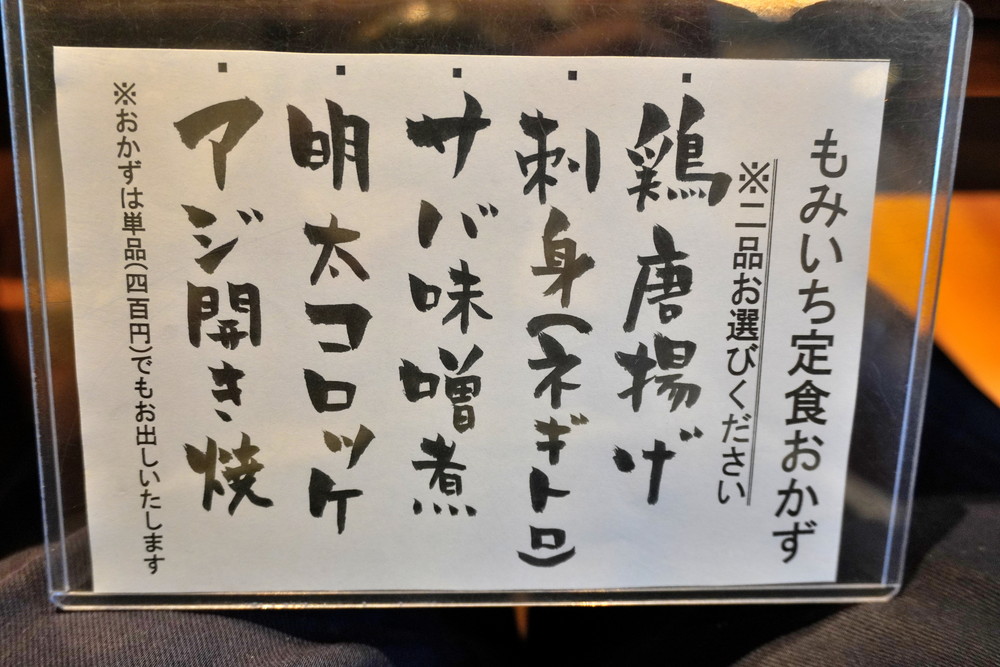 もみいち定食おかず
※二品お選びください
・鶏唐揚げ
・刺身(ネギトロ)
・サバ味噌煮
・明太コロッケ
・アジ開き焼
※おかずは単品(四百円)でもお出しいたします